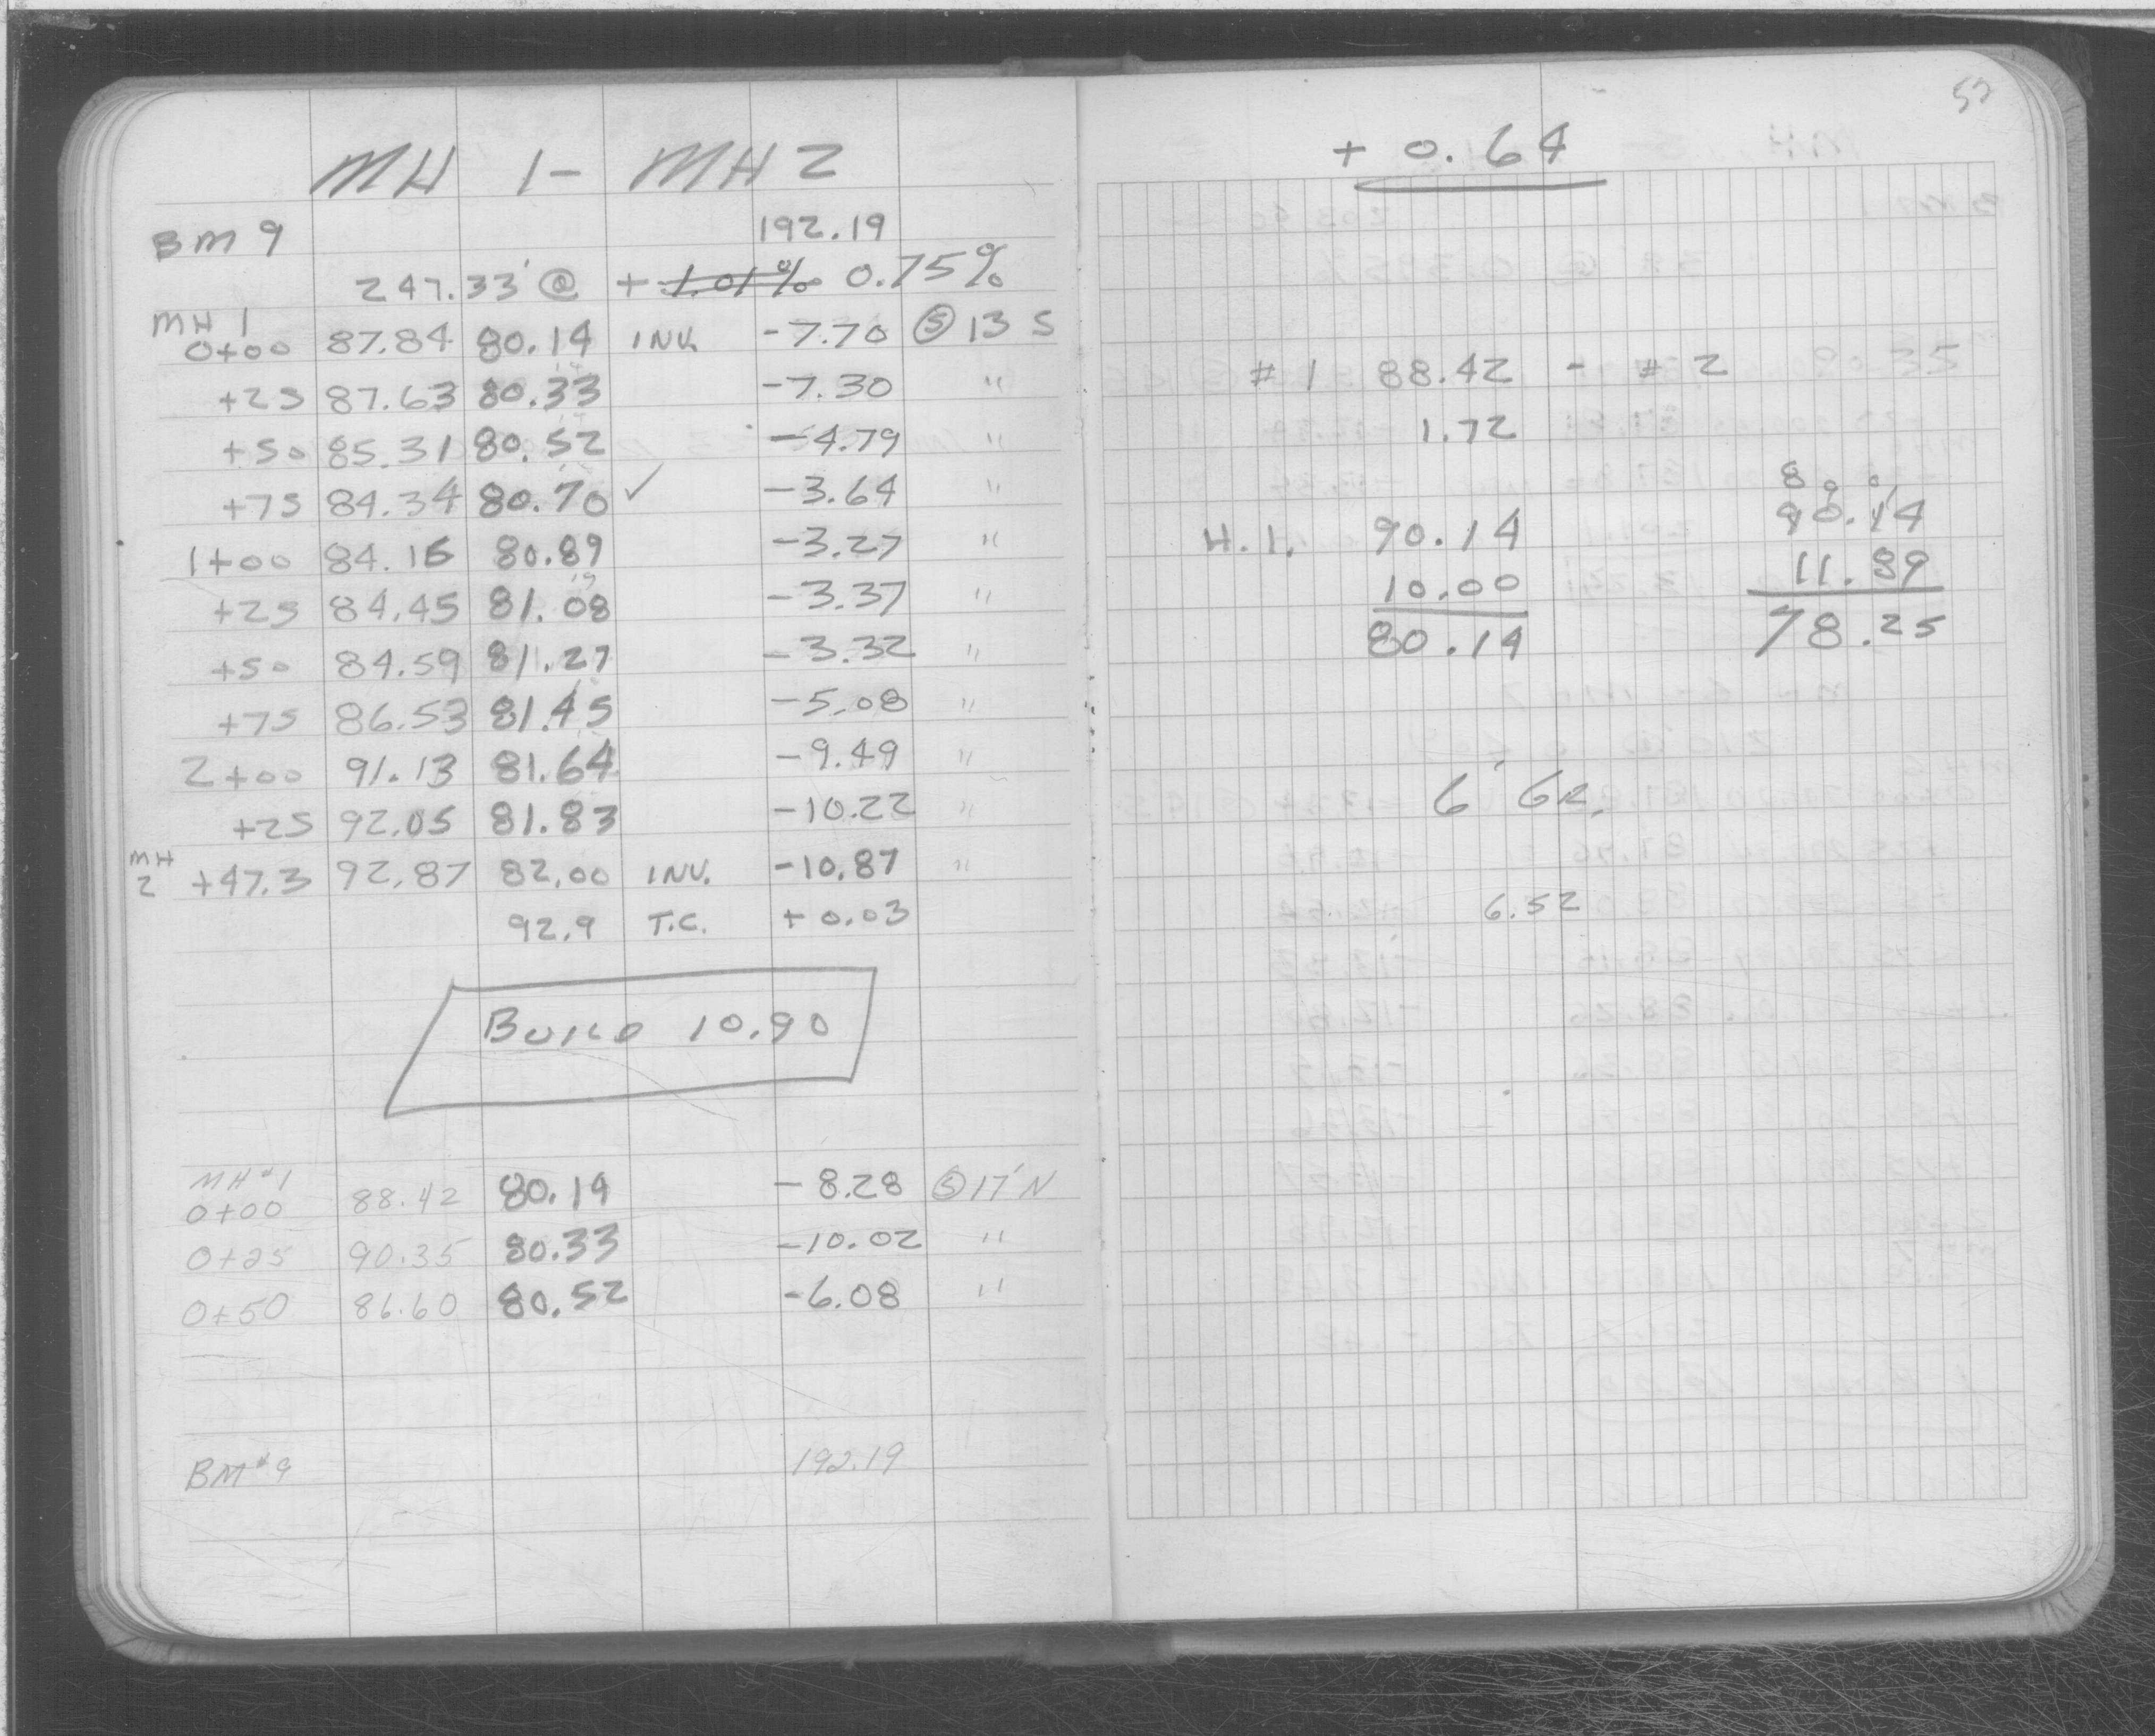 MH 1 - MH 2
BM 9 192.19
247.33' @ + 1.01% 0.75%
MH 1
0+00 87.84 80.14 INV. -7.70 Ⓢ 13 S
+25 87.63 80.33 -7.30 "
+50 85.31 80.52 -4.79 "
+75 84.34 80.70 ✓ -3.64 "
1+00 84.16 80.89 -3.27 "
+25 84.45 81.08 -3.37 "
+50 84.59 81.27 -3.32 "
+75 86.53 81.45 -5.08 "
2+00 91.13 81.64 -9.49 "
+25 92.05 81.83 -10.22 "
MH
2 +47.3 92.87 82.00 INV. -10.87 "
92.9 T.C. +0.03
BUILD 10.90
MH #1
0+00 88.42 80.14 -8.28 Ⓢ 17' N
0+25 90.35 80.33 -10.02 "
0+50 86.60 80.52 -6.08 "
BM #9 192.19
+ 0.64
# 1 88.42 - # 2
1.72
H.I. 90.14 90.14
10.00 11.89
80.14 78.25
6' GR.
6.52